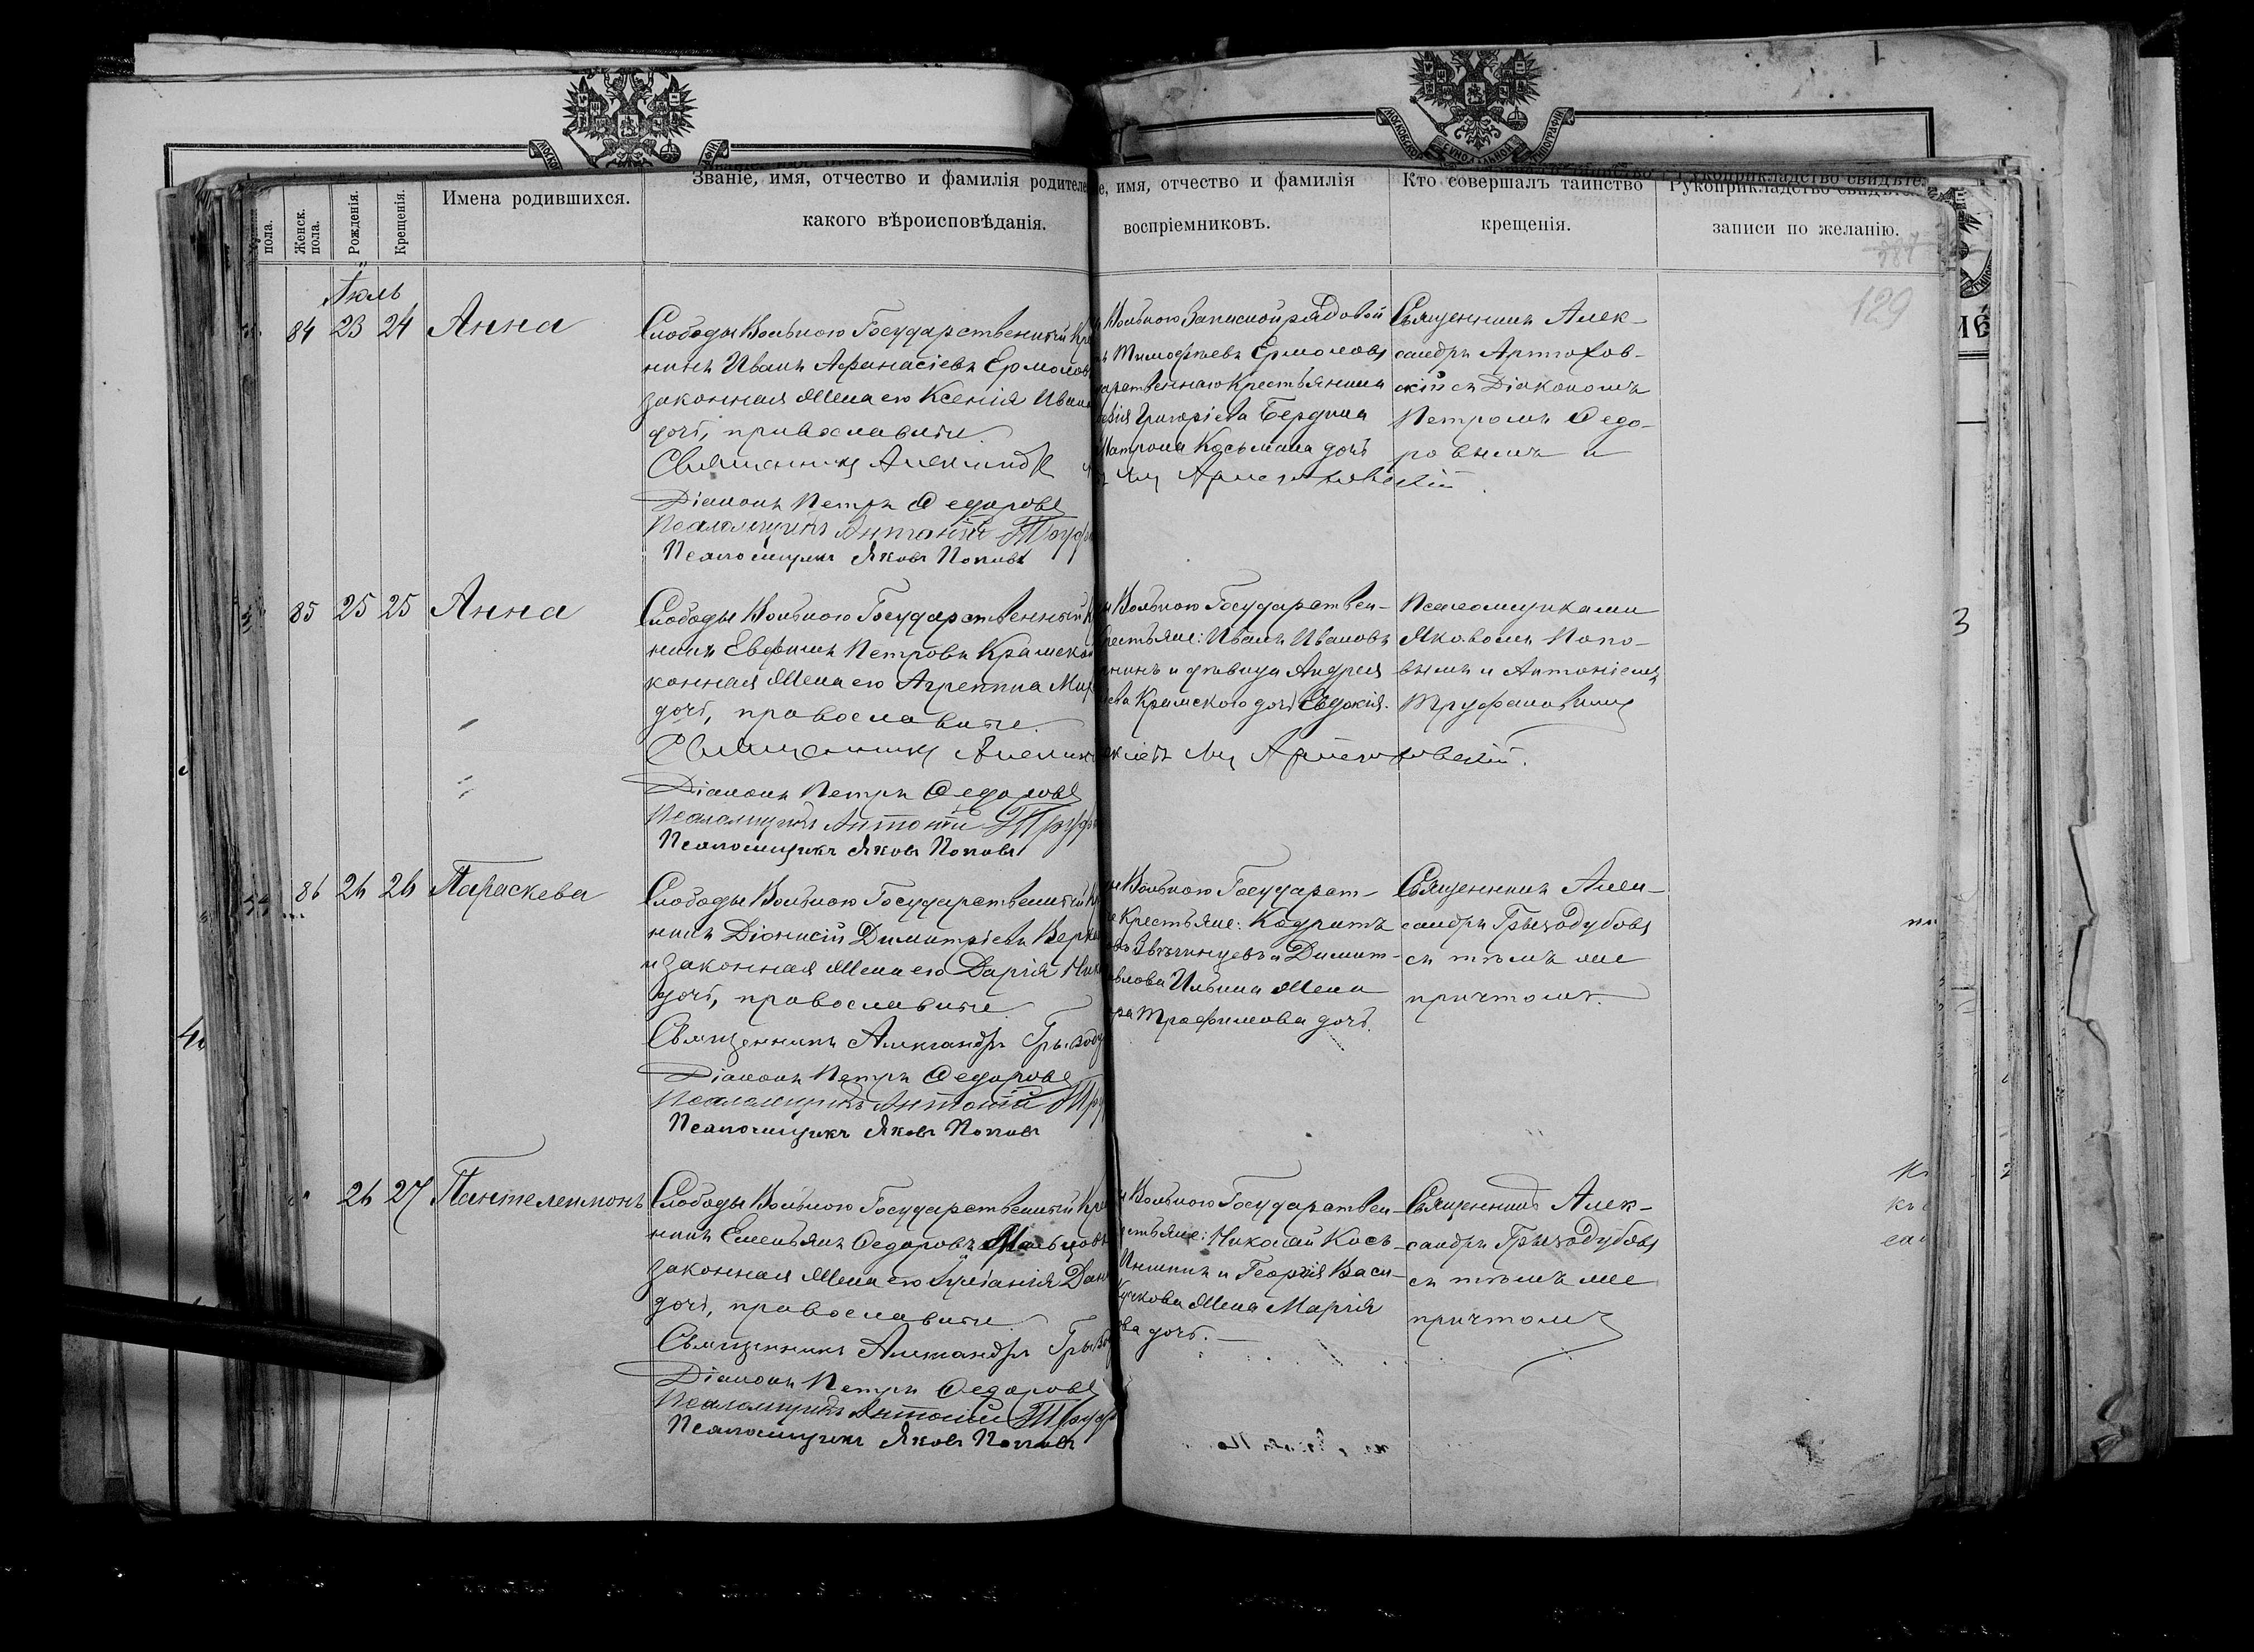 МОСКОВСКОЙ СѴНОДАЛЬНОЙ ТИПОГРАФІИ
пола.
Женск. пола.
Рожденія.
Крещенія.
Имена родившихся.
Званіе, имя, отчество и фамилія родителе
какого вѣроисповѣданія.
е, имя, отчество и фамилія
воспріемниковъ.
Кто совершалъ таинство
крещенія.
Рукоприкладство свидѣте.
записи по желанію.
129
Іюль
84 23 24 Анна
Слободы Вольною Государственный Кре
нинъ Иванъ Аѳанасіевъ Ермолов
законная жена его Ксенія Иван
дочь, православные.
Священникъ Александр
Діаконъ Петръ Ѳедоровъ
Псаломщикъ Антоній Труф
Псаломщикъ Яковъ Поповъ
Вольною Запасной рядовой
Тимоѳеевъ Ермоловъ
дарственнаго Крестьянина
Григоріева Бердина
Матрона Косьмина дочь
Священникъ Алек-
сандръ Артюхов-
скій съ Діакономъ
Петромъ Ѳедо-
ровымъ и
85 25 25 Анна
Слободы Вольною Государственный К
нинъ Евфимъ Петровъ Крамской
конная жена его Агреппина Мих
дочь, православные.
Священникъ
Діаконъ Петръ Ѳедоровъ
Псаломщикъ Антоній Труф
Псаломщикъ Яковъ Поповъ
Вольною Государствен-
рестьяне: Иванъ Ивановъ
нинъ и дѣвица Андрея
ева Крамского дочь Евдокія.
Псаломщиками
Яковомъ Попо-
вымъ и Антоніемъ
Труфановымъ
86 26 26 Параскева
Слободы Вольною Государственный Кр
нинъ Діонисій Димитріевъ Верк
и законная жена его Дарія Ник
дочь, православные.
Священникъ Александръ Грызоду
Діаконъ Петръ Ѳедоровъ
Псаломщикъ Антоній Тру
Псаломщикъ Яковъ Поповъ
Вольною Государст-
е Крестьяне: Кодратъ
овъ Звѣгинцевъ и Димит-
авлова Ильина жена
ра Трофимова дочь.
Священникъ Алек-
сандръ Грызодубовъ
съ тѣмъ же
причтомъ.
26 27 Пантелеимонъ
Слободы Вольною Государственный Кре
нинъ Емельянъ Ѳедоровъ Мальцовъ
законная жена его Дан
дочь, православные.
Священникъ Александръ Грызо
Діаконъ Петръ Ѳедоровъ
Псаломщикъ Антоній Труф
Псаломщикъ Яковъ Поповъ
Вольною Государствен-
естьяне: Николай Кось-
Иншинъ и Георгія Васи-
жена Марія
ва дочь.
Священникъ Алек-
сандръ Грызодубовъ
съ тѣмъ же
причтомъ